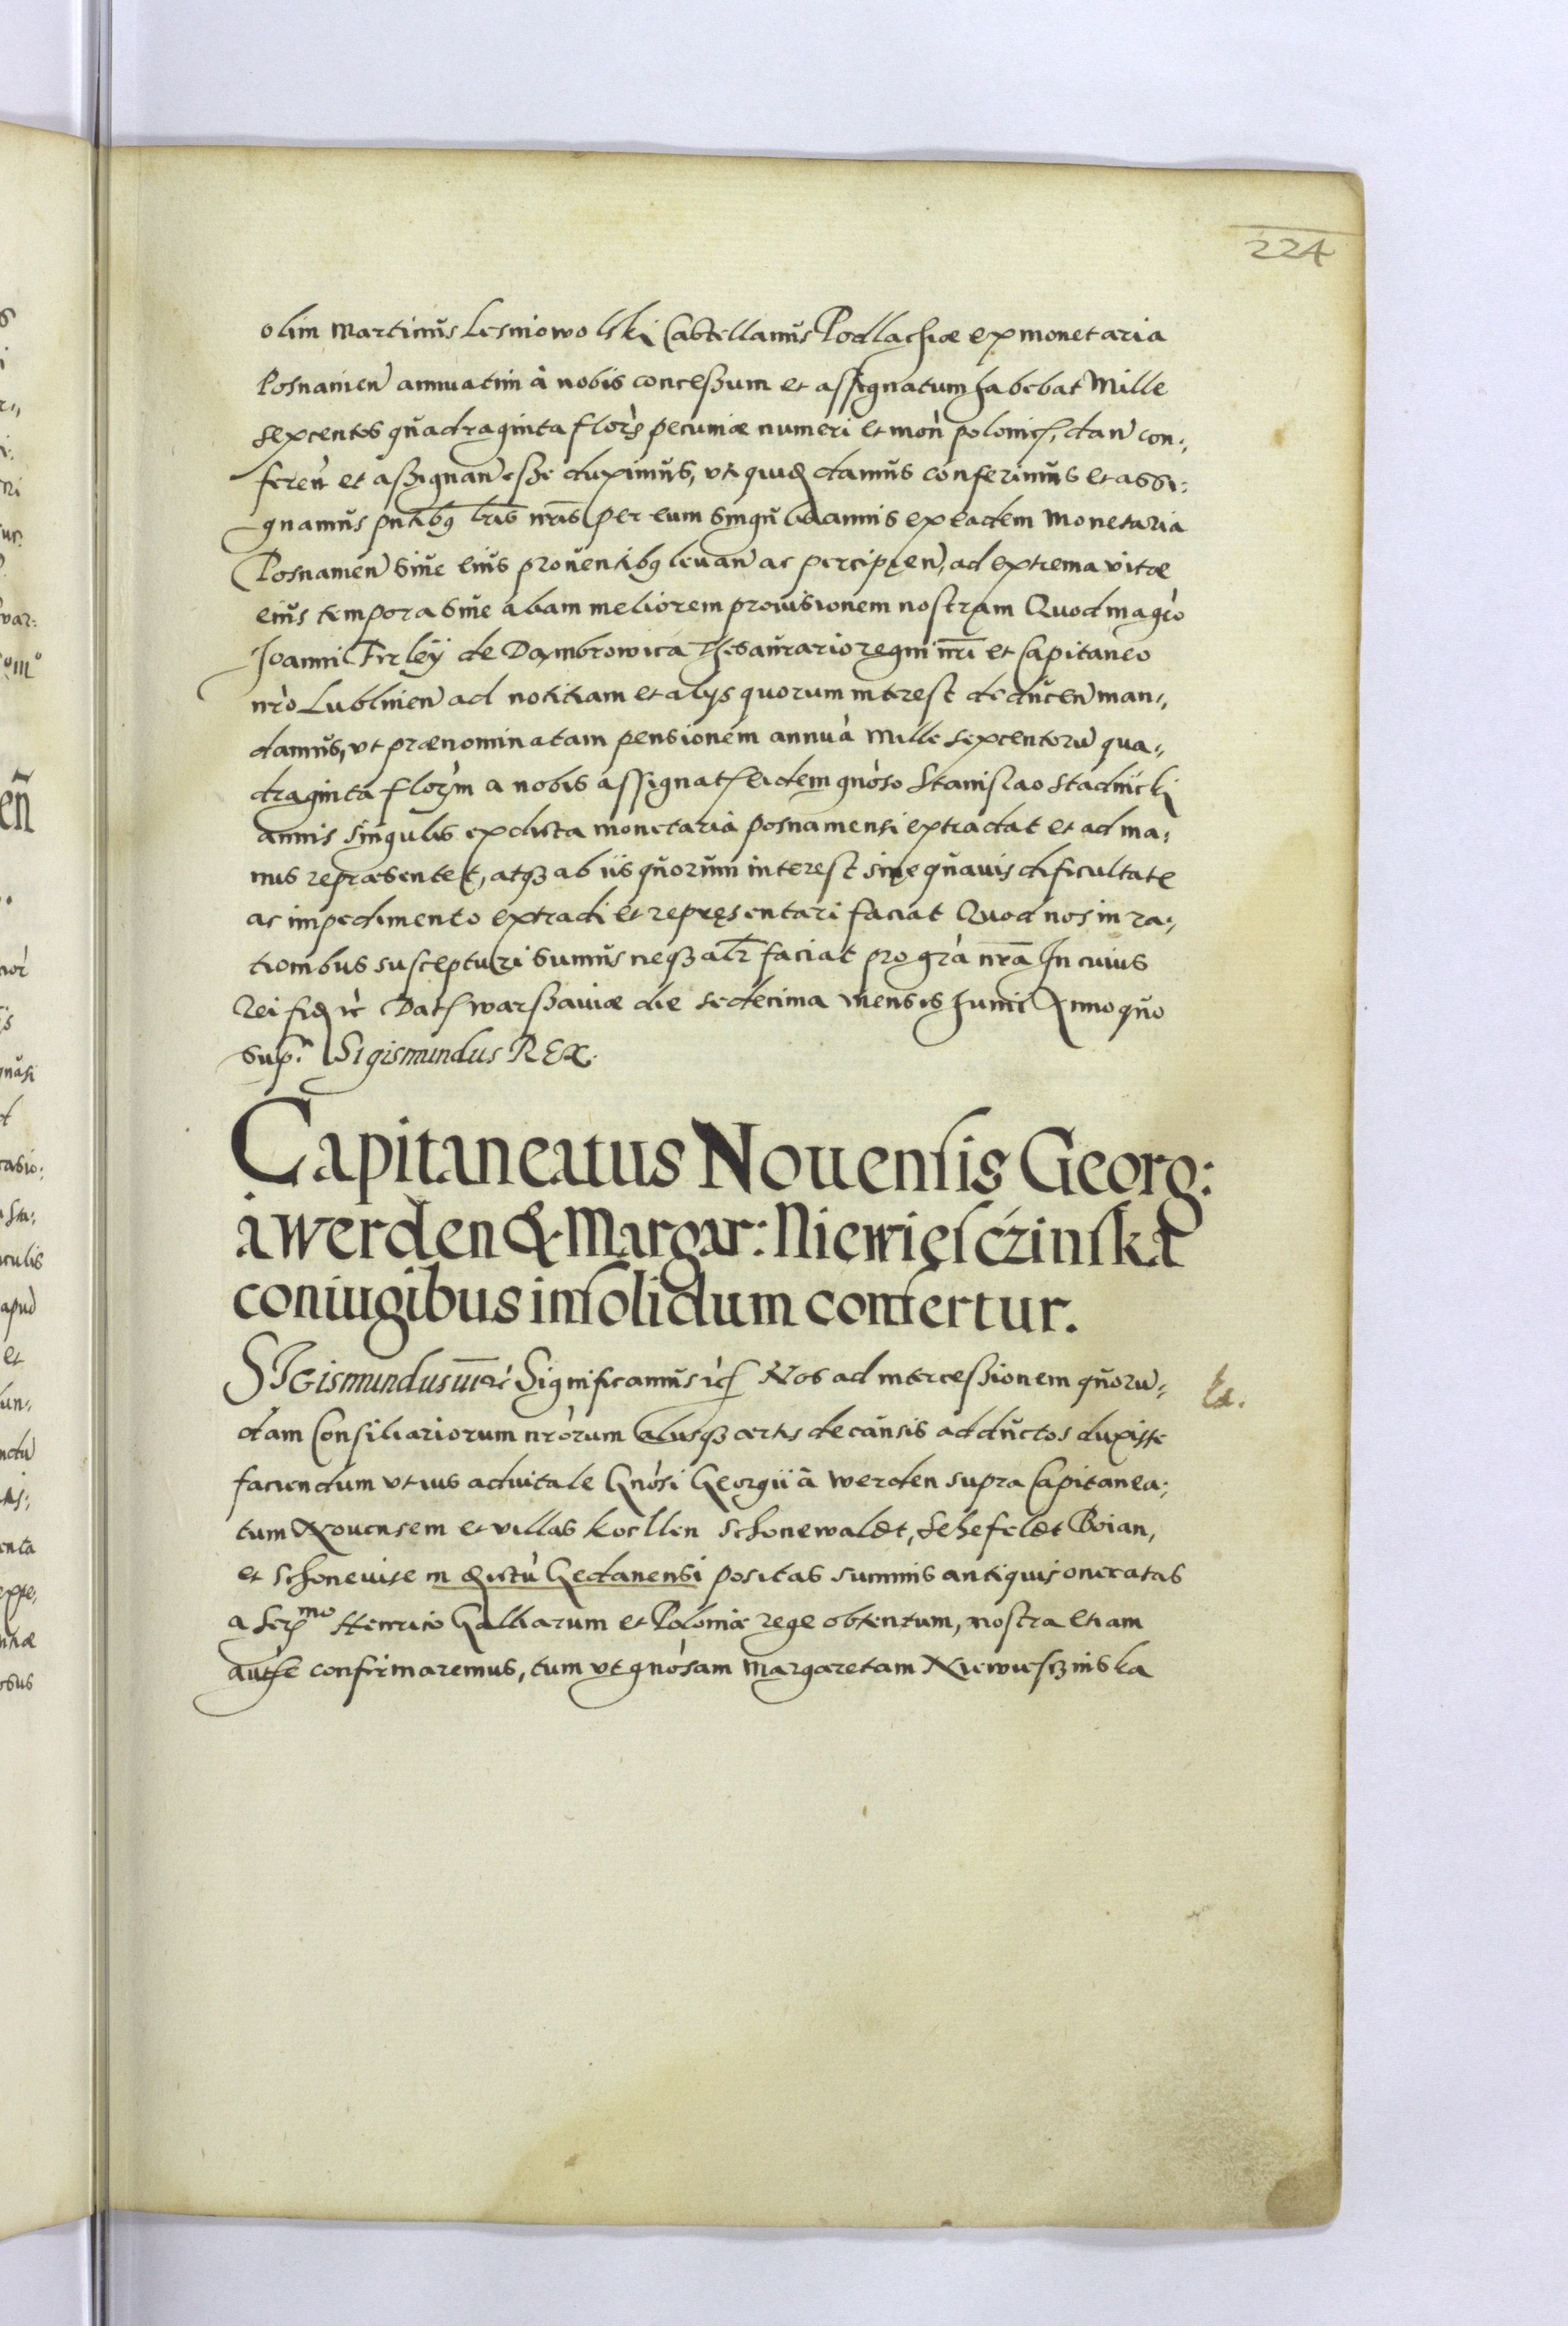 224
olim Martinus Lesniowolski Castellanus Podlachiæ ex monetaria
Posnanien annuatim à nobis concessum et assignatum habebat Mille
sexcentos quadraginta flor̀s pecuniæ numeri et moǹ polonic, dan con:,
fereǹ et assignan esse duximus, uti quidem damus conferimus et assi:
gnamus pntibq lras nras per eum singulis annis ex eadem Monetaria
Posnanien sive eius proventibq levan ac percipien, ad extrema vitæ
eius tempora sive aliam meliorem provisionem nostram Quod magc̀o
Joanni Firleÿ de Dambrowica Thesaurario regni nr̃i et Capitaneo
nr̀o Lublinen ad notitiam et alys quorum interest deducen man:,
damus, ut prænominatam pensionem annuà Mille sexcentoru qua:,
draginta flor̀m a nobis assignat eidem gnòso Stanislao Stadnicki
annis singulis ex dicta monetaria posnaniensi extradat et ad ma:
nus repræsentet, atqз ab iis quorum interest sine quavis dificultate
ac impedimento extradi et repręsentari faciat Quod nos in ra:,
tionibus suscepturi sumus neqз alr̃ faciat pro grà nrã In cuius
Rei fidem rc̀ Dat Warssaviæ die sedecima mensis Junii Anno quo
supra Sigismundus REX.
Capitaneatus Novensis Georg:
à Werden & Margar: Niewięsczinska
coniugibus insolidum confertur.
SIGismundus III rc̀ Significamus rc̀ Nos ad intercessionem quoru:,
dam Consiliariorum nròrum aliisqз certis de causis adductos duxisse
faciendum ut ius advitale Gnòsi Georgii à Werden supra Capitanea:,
tum Novensem et villas Koellen Schonewaldt, Sehefeldt Boian,
et Schonevise in districtù Gedanensi positas summis antiquis oneratas
a Ser^mo Henrico Galliarum et Poloniæ rege obtentum, nostra etiam
authe confirmaremus, tum ut gnòsam Margaretam Niewiesczinska